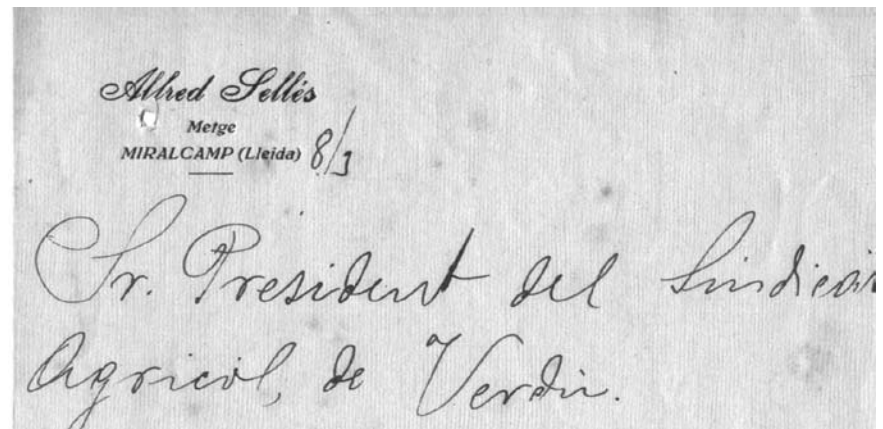 Alfred Sellés
Metge
MIRALCAMP (Lleida) 8/3
Sr. President del Sindicat
Agricol, de Verdú.